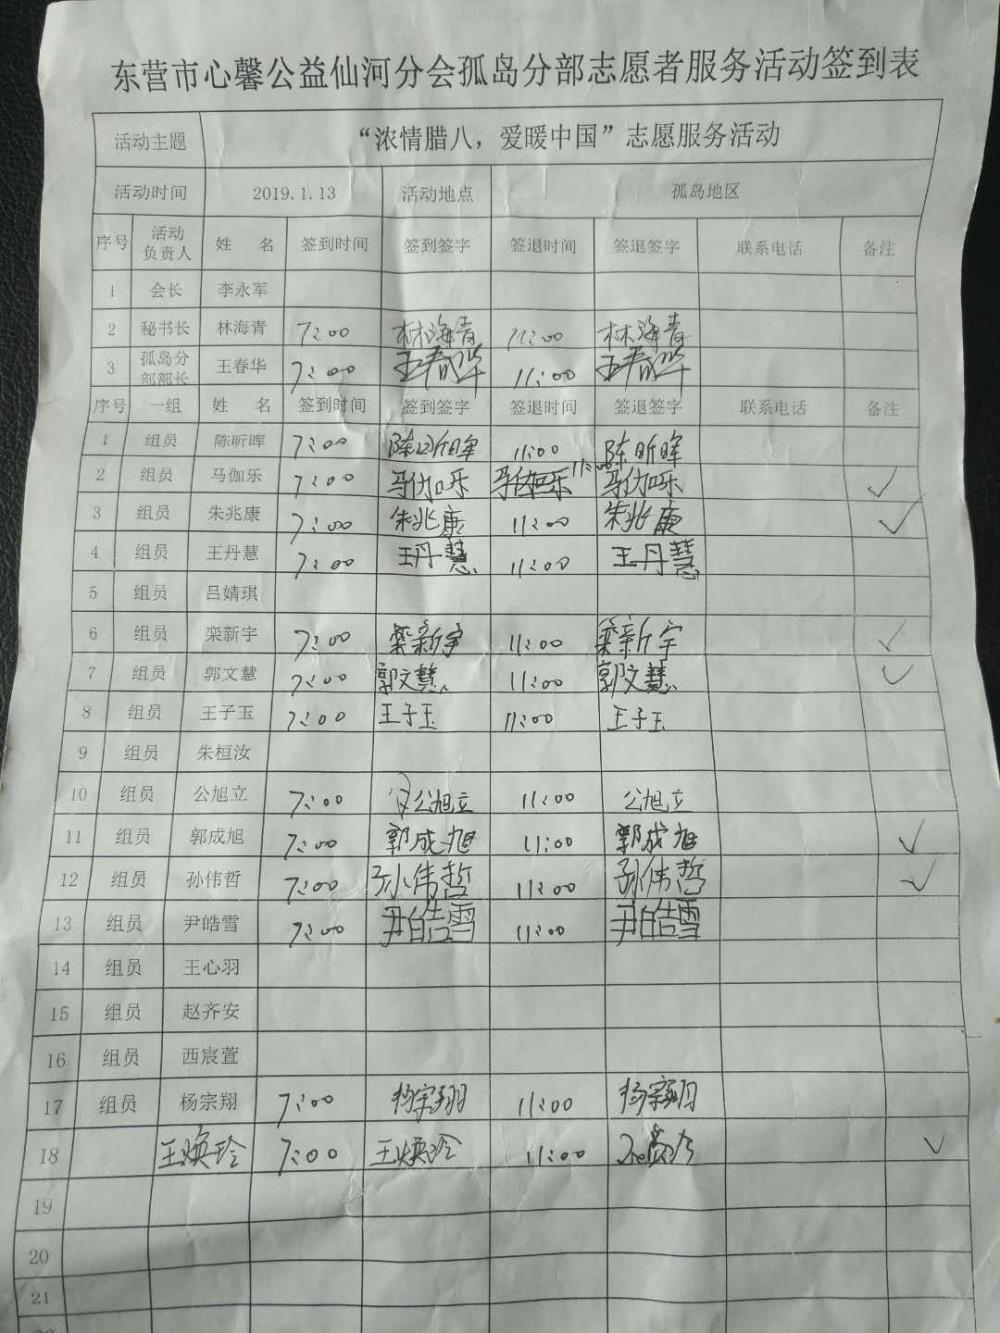 东营市心馨公益仙河分会孤岛分部志愿者服务活动签到表
活动主题 “浓情腊八，爱暖中国”志愿服务活动
活动时间 2019.1.13 活动地点 孤岛地区
序号 活动负责人 姓 名 签到时间 签到签字 签退时间 签退签字 联系电话 备注
1 会长 李永军
2 秘书长 林海青 7:00 林海青 11:00 林海青
3 孤岛分部部长 王春华 7:00 王春华 11:00 王春华
序号 一组 姓 名 签到时间 签到签字 签退时间 签退签字 联系电话 备注
1 组员 陈昕晖 7:00 陈昕晖 11:00 陈昕晖
2 组员 马伽乐 7:00 马伽乐 马伽乐 11:00 马伽乐 ✓
3 组员 朱兆康 7:00 朱兆康 11:00 朱兆康 ✓
4 组员 王丹慧 7:00 王丹慧 11:00 王丹慧
5 组员 吕婧琪
6 组员 栾新宇 7:00 栾新宇 11:00 栾新宇 ✓
7 组员 郭文慧 7:00 郭文慧 11:00 郭文慧 ✓
8 组员 王子玉 7:00 王子玉 11:00 王子玉
9 组员 朱桓汝
10 组员 公旭立 7:00 公旭立 11:00 公旭立
11 组员 郭成旭 7:00 郭成旭 11:00 郭成旭 ✓
12 组员 孙伟哲 7:00 孙伟哲 11:00 孙伟哲 ✓
13 组员 尹皓雪 7:00 尹皓雪 11:00 尹皓雪
14 组员 王心羽
15 组员 赵齐安
16 组员 西宸萱
17 组员 杨宗翔 7:00 杨宗翔 11:00 杨宗翔
18 王焕玲 7:00 王焕玲 11:00 ✓
19
20
21